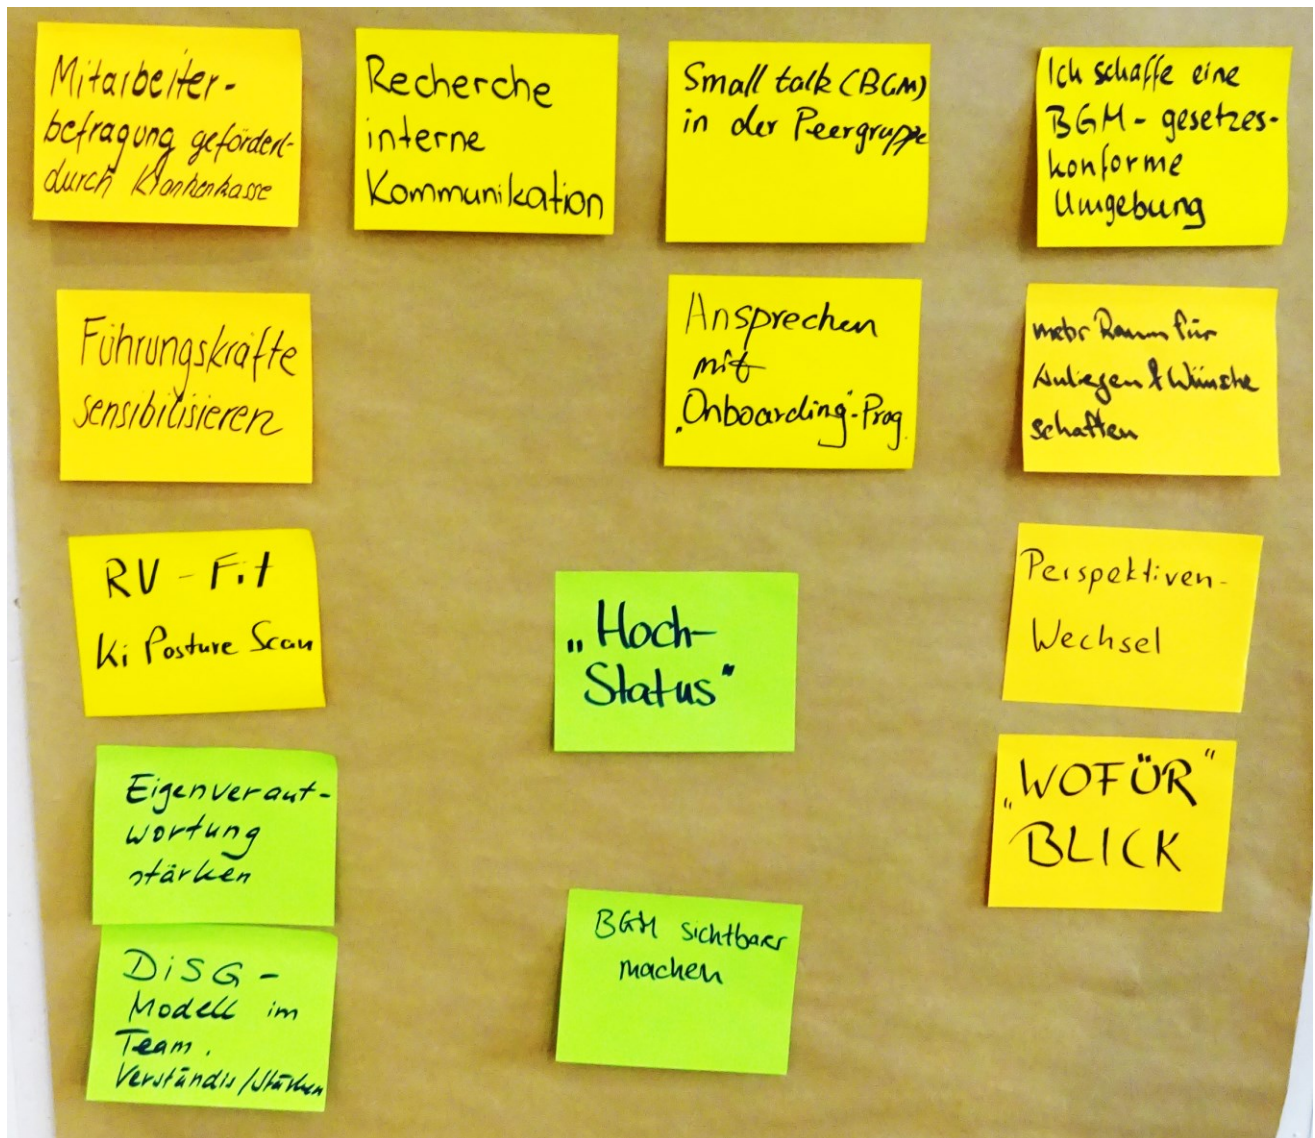 Mitarbeiter-
befragung gefördert
durch Krankenkasse
Recherche
interne
Kommunikation
Small talk (BGM)
in der Peergruppe
Ich schaffe eine
BGM - gesetzes-
konforme
Umgebung
Führungskräfte
sensibilisieren
Ansprechen
mit
„Onboarding"-Prog.
mehr Raum für
Anliegen & Wünsche
schaffen
RV - Fit
Ki Posture Scan
„Hoch-
Status"
Perspektiven-
Wechsel
Eigenverant-
wortung
stärken
„WOFÜR"
BLICK
DiSG -
Modell im
Team.
Verständis/stärken
BGM sichtbarer
machen